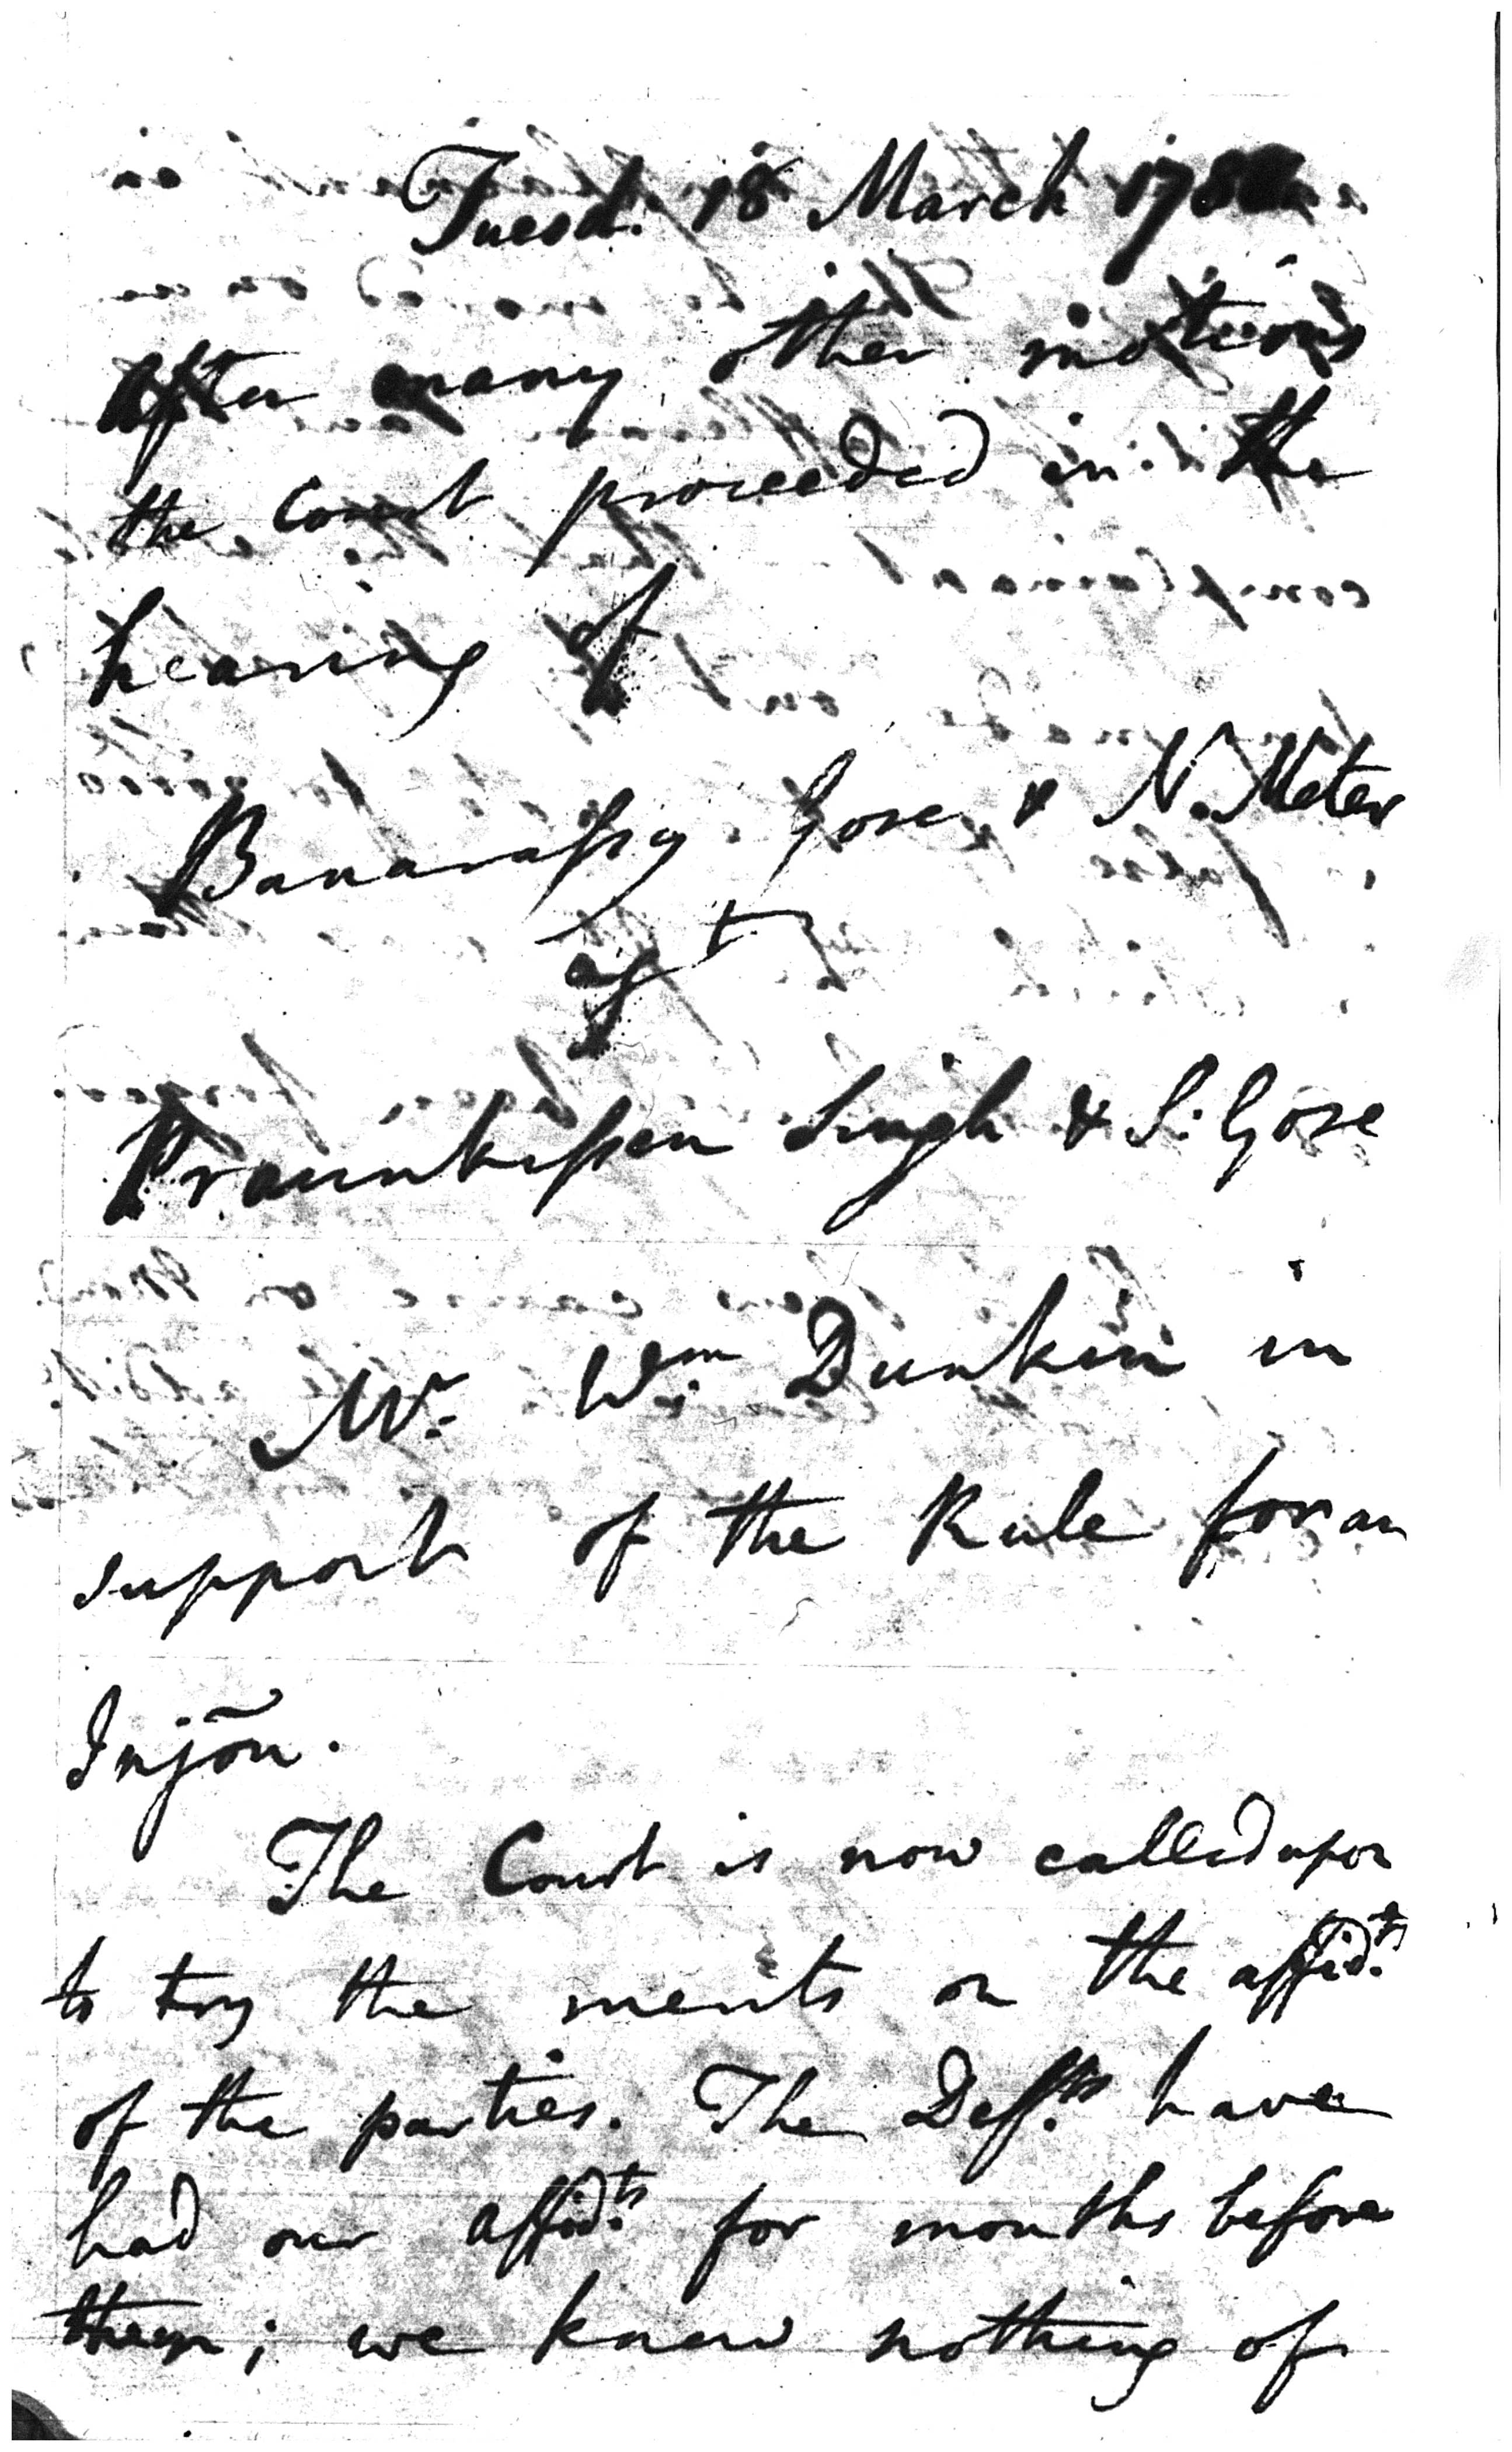 Tuesd. 18 March 178
After many other motions
the Court proceeded in the
hearing of
Banarassy Gose & N. Meter
agt
Praunkissen Singh & S: Gose
Mr. Wm. Dunkin in
support of the Rule for an
Injõn.
The Court is now called upon
to try the merits on the affidts.
of the parties. The Deffts. have
had our affidts. for months before
them; we knew nothing of